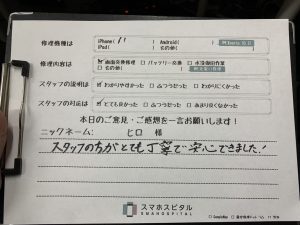 修理機種は
iPhone( 11 ) Android( )
iPad( ) その他( )
修理内容は 画面交換修理 □ バッテリー交換 □ 水没復旧作業
□ その他(
スタッフの説明は わかりやすかった □ ふつうだった □ わかりにくかった
スタッフの対応は とても良かった □ ふつうだった □ あまり良くなかった
本日のご意見・ご感想を一言お願いします!
ニックネーム: ヒロ 様
スタッフの方がとても丁寧で安心できました!
スマホスピタル
SMAHOSPITAL
□ GoogleMap